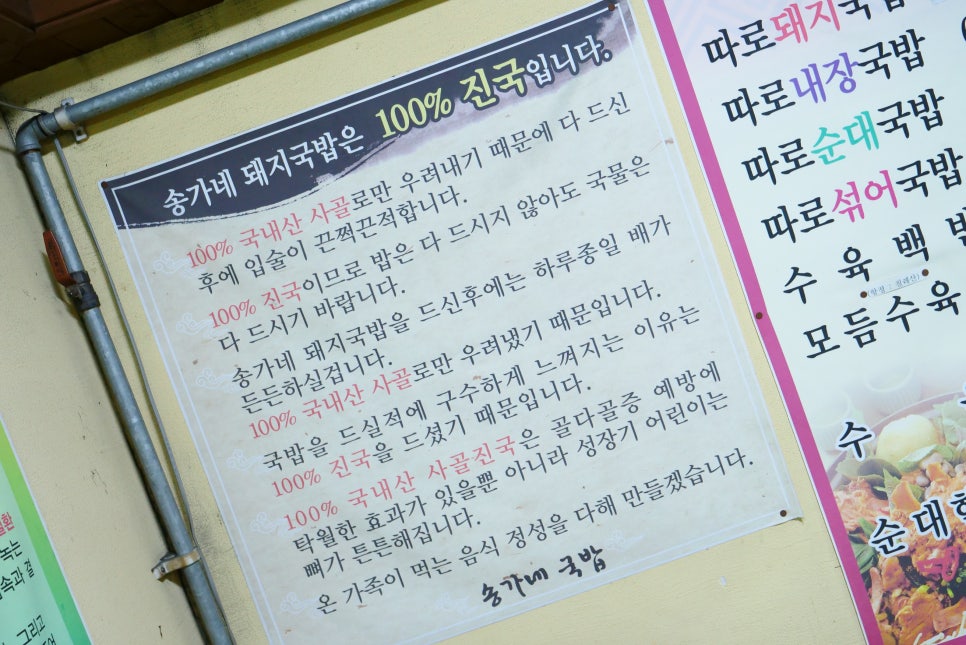 송가네 돼지국밥은 100% 진국입니다.
100% 국내산 사골로만 우려내기 때문에 다 드신
후에 입술이 끈쩍끈적합니다.
100% 진국이므로 밥은 다 드시지 않아도 국물은
다 드시기 바랍니다.
송가네 돼지국밥을 드신후에는 하루종일 배가
든든하실겁니다.
100% 국내산 사골로만 우려냈기 때문입니다.
국밥을 드실적에 구수하게 느껴지는 이유는
100% 진국을 드셨기 때문입니다.
100% 국내산 사골진국은 골다골증 예방에
탁월한 효과가 있을뿐 아니라 성장기 어린이는
뼈가 튼튼해집니다.
온 가족이 먹는 음식 정성을 다해 만들겠습니다.
송가네 국밥
따로돼지국밥
따로내장국밥
따로순대국밥
따로섞어국밥
수육백
모듬수육
수
순대
녹는
속과 결
그리고